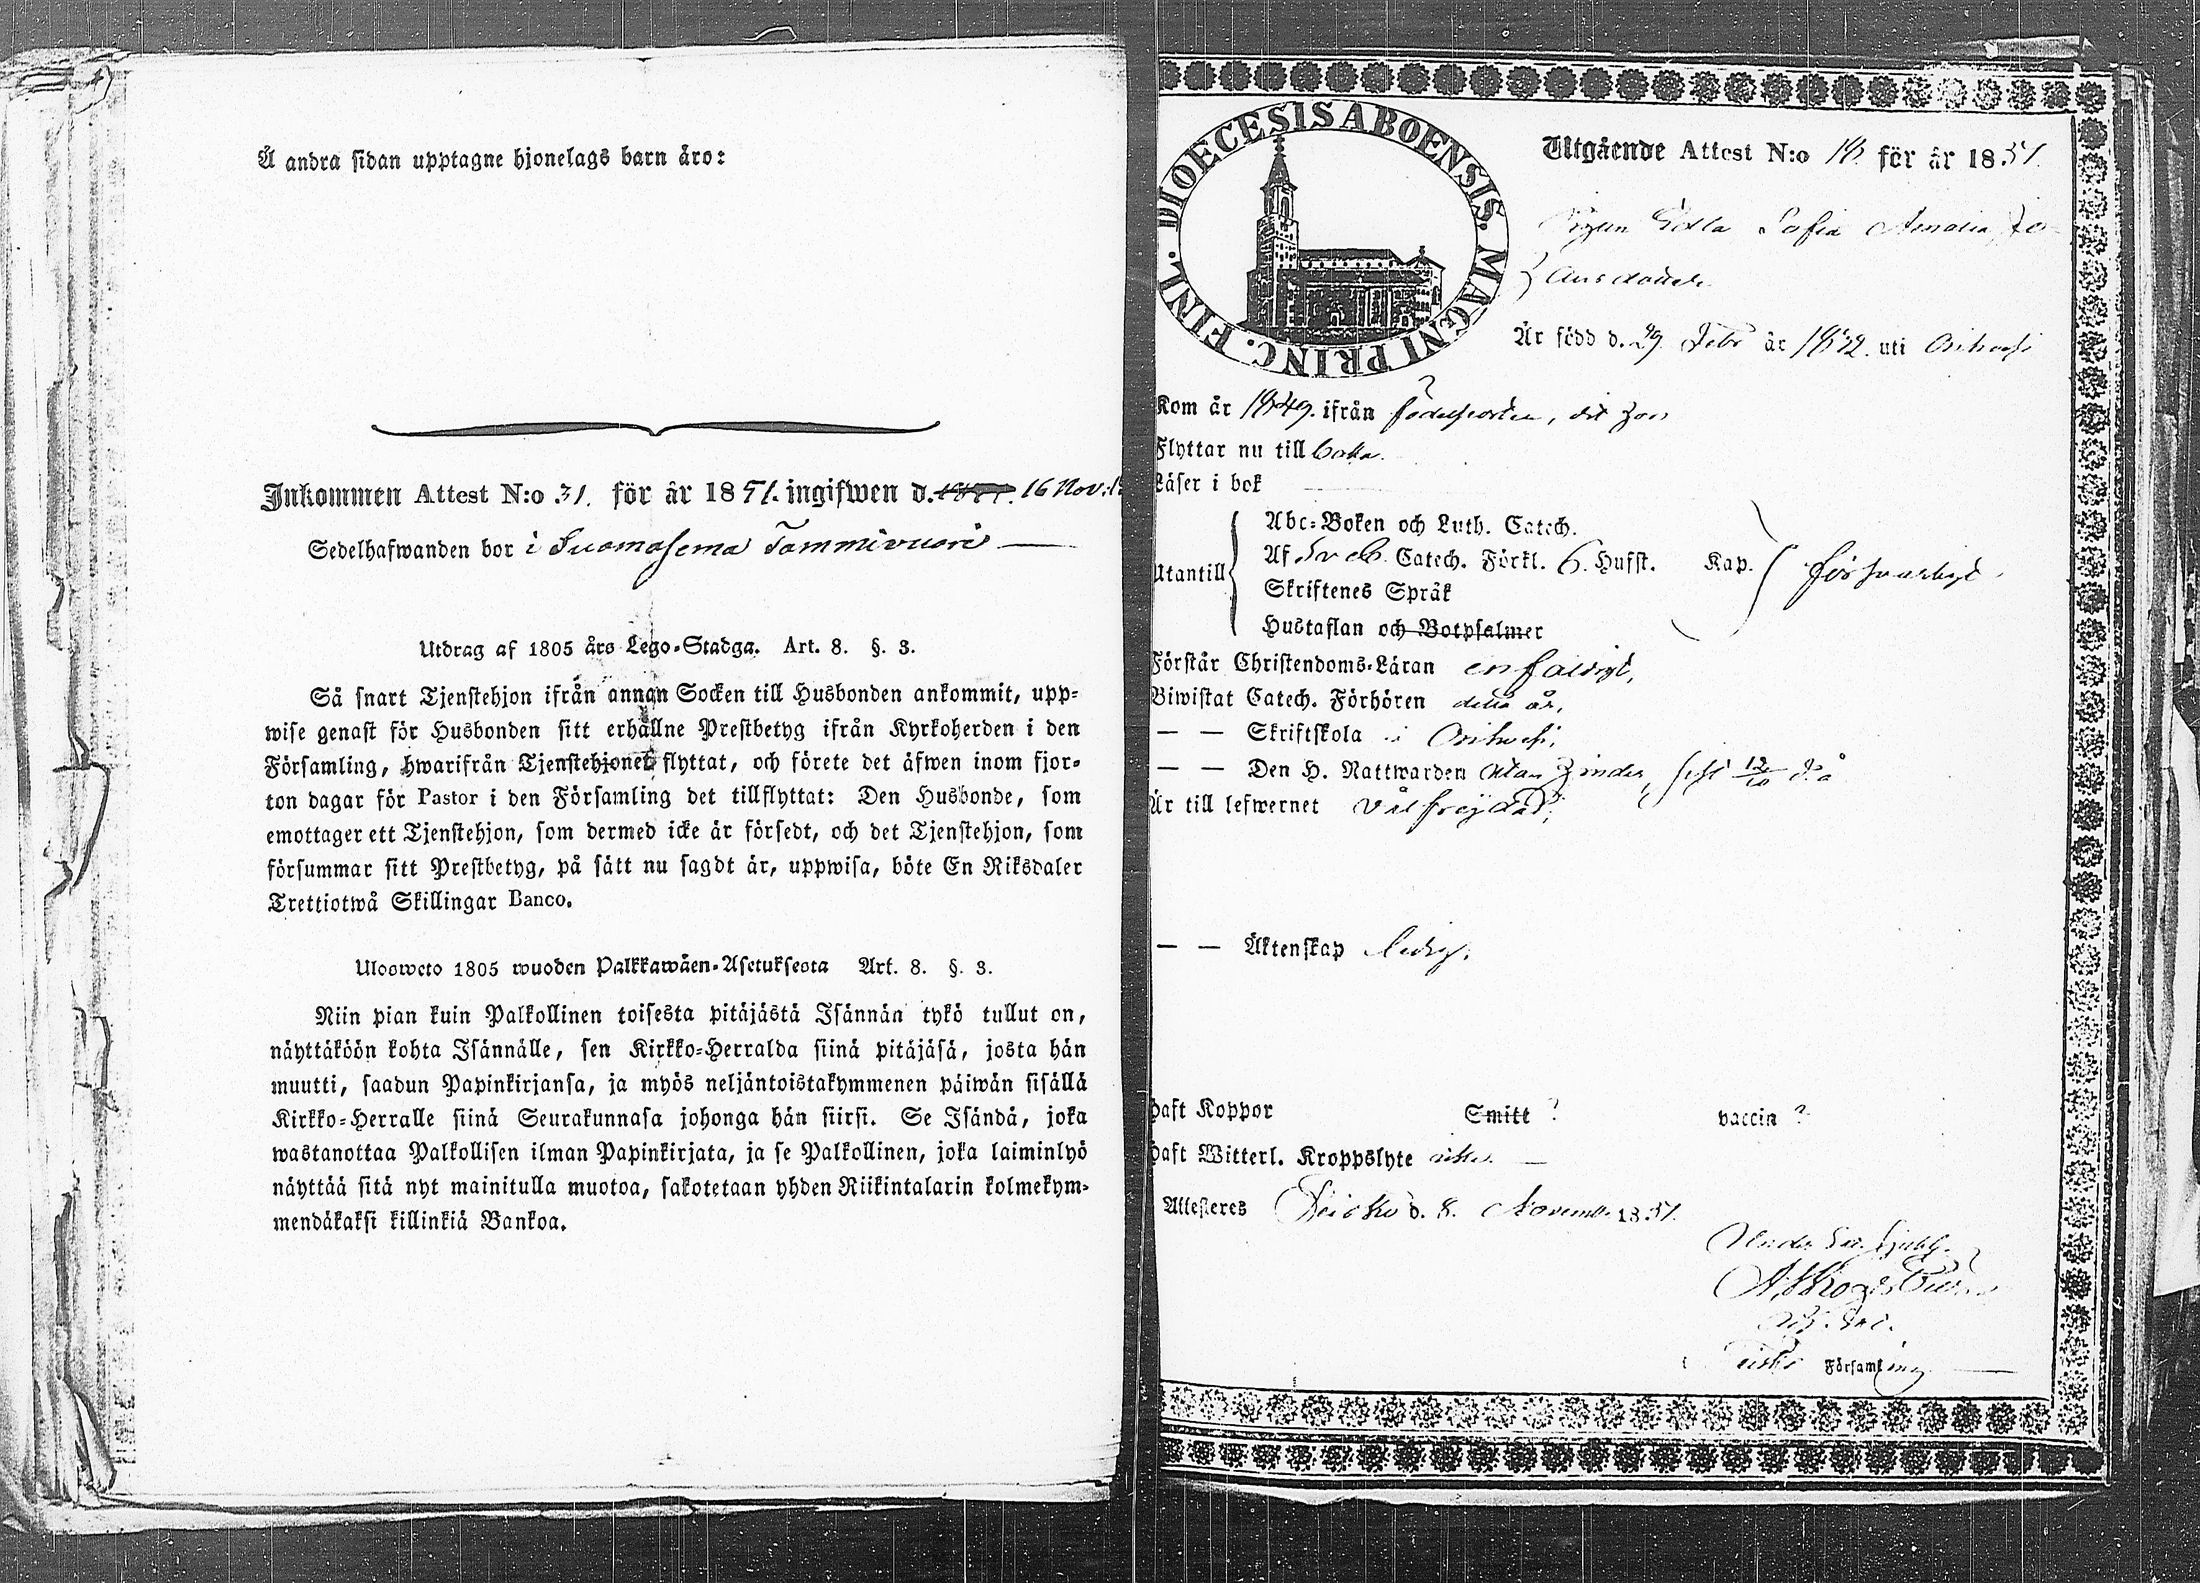 Å andra sidan upptagne hjonelags barn äro:
Inkommen Attest N:o 31. för år 1851. ingifwen d. 16 Nov:
Sedelhafwanden bor i Suomasema Tammivuori
Utdrag af 1805 års Lego-Stadga. Art. 8. §. 3.
Så snart Tjenstehjon ifrån annan Socken till Husbonden ankommit, upp-
wise genast för Husbonden sitt erhållne Prestbetyg ifrån Kyrkoherden i den
Församling, hwarifrån Tjenstehjonet flyttat, och förete det äfwen inom fjor-
ton dagar för Pastor i den Församling det tillflyttat: Den Husbonde, som
emottager ett Tjenstehjon, som dermed icke är försedt, och det Tjenstehjon, som
försummar sitt Prestbetyg, på sätt nu sagdt är, uppwisa, böte En Riksdaler
Trettiotwå Skillingar Banco.
Ulosweto 1805 wuoden Palkkawäen-Asetuksesta Art. 8. §. 3.
Niin pian kuin Palkollinen toisesta pitäjästä Isännän tykö tullut on,
näyttäköön kohta Isännälle, sen Kirkko-Herralda siinä pitäjäsä, josta hän
muutti, saadun Papinkirjansa, ja myös neljäntoistakymmenen päiwän sisällä
Kirkko-Herralle siinä Seurakunnasa johonga hän siirsi. Se Isändä, joka
wastanottaa Palkollisen ilman Papinkirjata, ja se Palkollinen, joka laiminlyö
näyttää sitä nyt mainitulla muotoa, sakotetaan yhden Riikintalarin kolmekym-
mendäkaksi killinkiä Bankoa.
DIOECESIS ABOENSIS. MAGNI PRINC. FINL.
Utgående Attest N:o 18. för år 1851.
Pigan Edla Sofia Amalia
Är född d. 29 Febr år 1832. uti Orihvesi
Kom år 1849. ifrån födelseorten, dit hon
Flyttar nu till baka.
Läser i bok
Utantill
Abc-Boken och Luth. Catech.
Af Sveb. Catech. Förkl. 6. Hufst. Kap. försvarligt
Skriftenes Språk
Hustaflan och Botpsalmer
Förstår Christendoms-Läran enfaldigt,
Biwistat Catech. Förhören detta år,
— — Skriftskola i Orihvesi,
— — Den H. Nattwarden utan hinder, sist 12/10 d. å
Är till lefwernet välfrejdad,
— — Äktenskap ledig.
Haft Koppor Smitt ? vaccin ?
Haft Witterl. Kroppslyte
Attesteres Teisko d. 8. November 1851.
Teisko Församling